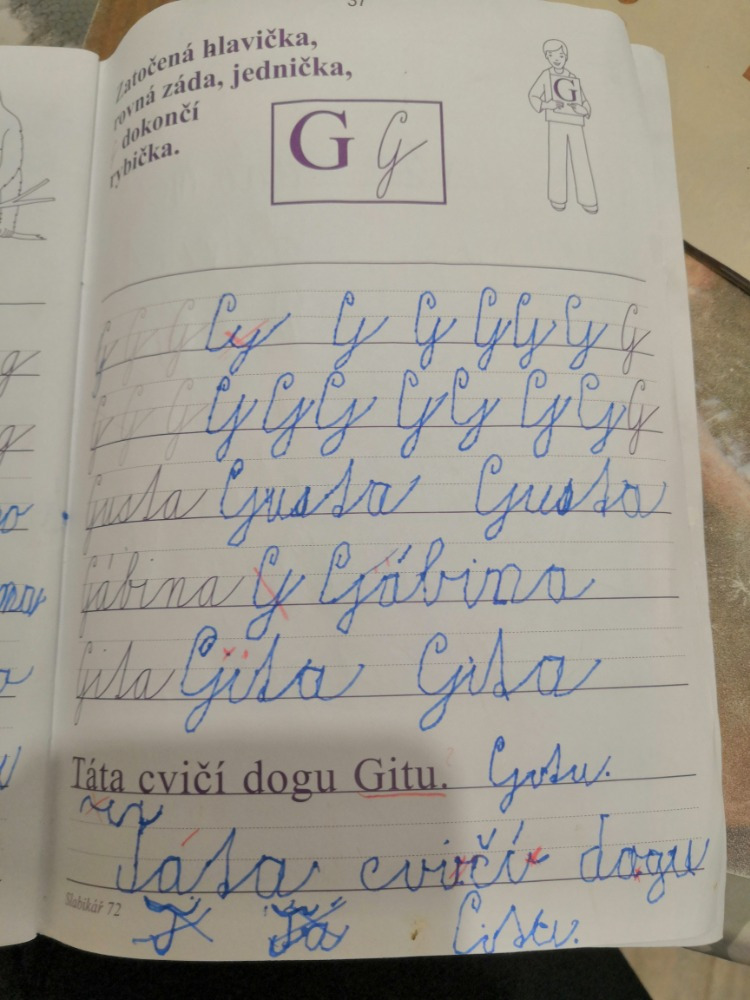 37
Zatočená hlavička,
rovná záda, jednička,
dokončí
rybička.
G G
G
G G G G G G G G G G G
G G G G G G G G G G G G
Gusta Gusta Gusta
Gábina G Gábina
Gita Gita Gita
Táta cvičí dogu Gitu. Gitu.
Táta cvičí dogu
Slabikář 72 T Tá Gitu.